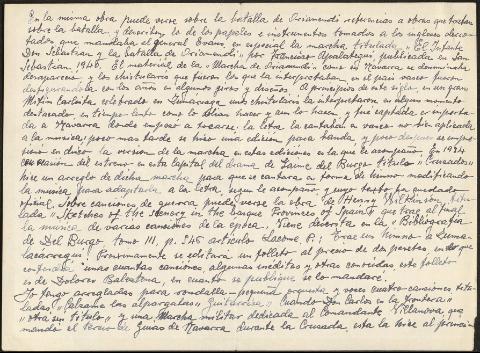 En la misma obra puede verse sobre la batalla de Oriamendi referencias a obras que tratan
sobre la batalla y describen lo de los papeles e instrumentos tomados a los ingleses derro-
tados que mandaba el general Evans en especial la marcha titulada "El Infante
Don Sebastian y la batalla de Oriamendi" por Francisco Apalategui publicada en San
Sebastian 1940. El material de la "Marcha de Oriamendi" como en Navarra se denomina,
desaparecio, y los chistularis que fueron los que la interpretaban, en el pais vasco fueron
desfigurandola con los años en algunos giros y diseños. A principios de este siglo, en un gran
Mitin Carlista celebrado en Zumarraga unos chistularis la interpretaron en algun momento
destacado en tiempo lento como lo solian hacer y aun lo hacen, y fue captada e importa-
da a Navarra donde empezó a tocarse; la letra la cantaban en vasco no bien aplicada
a la musica, pero mas tarde se hizo una edicion para banda, y poco despues se impri-
mió en disco la version de la marcha de estas ediciones es la que le acompaño. En 1937
con ocasión del estreno en esta capital del drama de Jaime del Burgo titulado "Cruzados"
hice un arreglo de dicha marcha para que se cantara en forma de himno modificando
la musica para adaptarla a la letra, segun le acompaño y cuyo texto ha quedado
oficial. Sobre canciones de guerra puede verse la obra de Henry Wilkinson, titu-
lada "Sketches of the scenery in the basque Provinces of Spain" que trae al final
la musica de varias canciones de la epoca. Viene descrita en la "Bibliografia
de Del Burgo, tomo III, p. 545 articulo Lacome, P.: trae un himno a Zuma-
lacarregui. Proximamente se editará un folleto al precio de dos pesetas en el que
contendrá unas cuantas canciones, algunas inéditas y otras conocidas este folleto
es de Dolores Baleztena, en cuanto se publique se lo mandaré.
Yo tengo arregladas para rondalla - pequeña orquesta y voces cuatro canciones titu-
ladas "Calzame las alpargatas, Guitarrica" "Cuando Don Carlos en la frontera"
"otra sin titulo" y una Marcha militar dedicada al Comandante Villanova, que
mandó el tercio de Zuavos de Navarra durante la Cruzada, esta la hice al principio